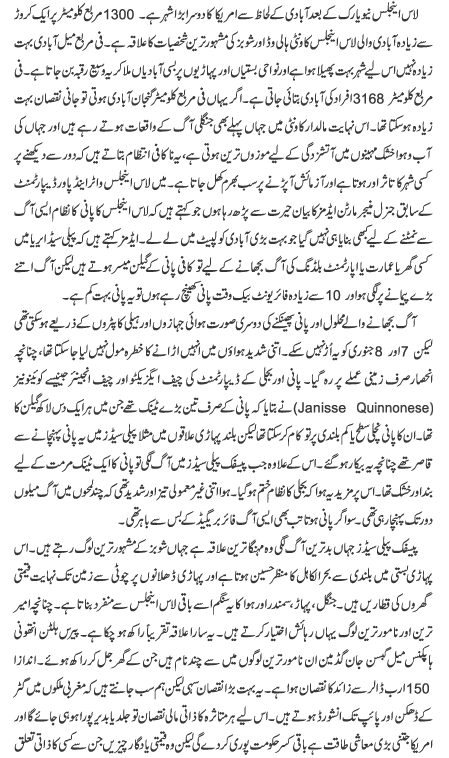 لاس اینجلس نیو یارک کے بعد آبادی کے لحاظ سے امریکا کا دوسرا بڑا شہر ہے۔ 1300 مربع کلومیٹر پر ایک کروڑ
سے زیادہ آبادی والی لاس اینجلس کاؤنٹی ہالی وڈ اور شوبز کی مشہور ترین شخصیات کا علاقہ ہے۔ فی مربع میل آبادی بہت
زیادہ نہیں اس لیے شہر بہت پھیلا ہوا ہے اور نواحی بستیاں اور پہاڑیوں پر بسی آبادیاں ملا کر یہ وسیع رقبہ بن جاتا ہے۔ فی
مربع کلومیٹر 3168 افراد کی آبادی بتائی جاتی ہے۔ اگر یہاں فی مربع کلومیٹر گنجان آبادی ہوتی تو جانی نقصان بہت
زیادہ ہو سکتا تھا۔ اس نہایت مالدار کاؤنٹی میں جہاں پہلے بھی جنگلی آگ کے واقعات ہوتے رہے ہیں اور جہاں کی
آب و ہوا خشک مہینوں میں آتشزدگی کے لیے موزوں ترین ہوتی ہے، یہ ناکافی انتظام بتاتے ہیں کہ دور سے دیکھنے پر
کسی شہر کا تاثر اور ہوتا ہے اور آزمائش آ پڑنے پر سب بھرم کھل جاتا ہے۔ میں لاس اینجلس واٹر اینڈ پاور ڈیپارٹمنٹ
کے سابق جنرل منیجر مارٹن ایڈمز کا بیان حیرت سے پڑھ رہا ہوں جو کہتے ہیں کہ لاس اینجلس کا پانی کا نظام ایسی آگ
سے نمٹنے کے لیے کبھی بنایا ہی نہیں گیا جو بہت بڑی آبادی کو لپیٹ میں لے لے۔ ایڈمز کہتے ہیں کہ پیلی سیڈز ایریا میں
کسی گھر یا عمارت یا اپارٹمنٹ بلڈنگ کی آگ بجھانے کے لیے تو کافی پانی کے گیلن میسر ہوتے ہیں لیکن آگ اتنے
بڑے پیمانے پر لگی ہو اور 10 سے زیادہ فائر یونٹ بیک وقت پانی کھینچ رہے ہوں تو یہ پانی بہت کم ہے۔
آگ بجھانے والے محلول اور پانی پھینکنے کی دوسری صورت ہوائی جہازوں اور ہیلی کاپٹروں کے ذریعے ہو سکتی تھی
لیکن 7 اور 8 جنوری کو یہ اُڑ نہیں سکے۔ اتنی شدید ہواؤں میں انہیں اڑانے کا خطرہ مول نہیں لیا جا سکتا تھا، چنانچہ
انحصار صرف زمینی عملے پر رہ گیا۔ پانی اور بجلی کے ڈیپارٹمنٹ کی چیف ایگزیکٹو اور چیف انجینئر جینیسے کوئنونیز
(Janisse Quinnonese) نے بتایا کہ پانی کے صرف تین بڑے ٹینک تھے جن میں ہر ایک دس لاکھ گیلن کا
تھا۔ ان کا پانی نچلی سطح یا کم بلندی پر تو کام کر سکتا تھا لیکن بلند پہاڑی علاقوں میں مثلا پیلی سیڈز میں یہ پانی پہنچانے سے
قاصر تھے چنانچہ یہ بیکار ہو گئے۔ اس کے علاوہ جب پیسفک پیلی سیڈز میں آگ لگی تو پانی کا ایک ٹینک مرمت کے لیے
بند اور خشک تھا۔ اس پر مزید یہ ہوا کہ بجلی کا نظام ختم ہو گیا۔ ہوا اتنی غیر معمولی تیز اور شدید تھی کہ چند لمحوں میں آگ میلوں
دور تک پہنچا رہی تھی۔ سو اگر پانی ہوتا تب بھی ایسی آگ فائر بریگیڈ کے بس سے باہر تھی۔
پیسفک پیلی سیڈز جہاں بدترین آگ لگی وہ مہنگا ترین علاقہ ہے جہاں شوبز کے مشہور ترین لوگ رہتے ہیں۔ اس
پہاڑی بستی میں بلندی سے بحر الکاہل کا منظر حسین ہوتا ہے اور پہاڑی ڈھلانوں پر چوٹی سے زمین تک نہایت قیمتی
گھروں کی قطاریں ہیں۔ جنگل، پہاڑ، سمندر اور ہوا کا یہ سنگم اسے باقی لاس اینجلس سے منفرد بناتا ہے۔ چنانچہ امیر
ترین اور نامور ترین لوگ یہاں رہائش اختیار کرتے ہیں۔ یہ سارا علاقہ تقریبا راکھ ہو چکا ہے۔ پیرس ہلٹن انتھونی
ہاپکنس میل گبسن جان گڈمین ان نامور ترین لوگوں میں سے چند نام ہیں جن کے گھر جل کر راکھ ہوئے۔ اندازا
150 ارب ڈالر سے زائد کا نقصان ہوا ہے۔ یہ بہت بڑا نقصان سہی لیکن ہم سب جانتے ہیں کہ مغربی ملکوں میں گٹر
کے ڈھکن اور پائپ تک انشورڈ ہوتے ہیں۔ اس لیے ہر متاثرہ کا ذاتی مالی نقصان تو جلد یا بدیر پورا ہو ہی جائے گا اور
امریکا جتنی بڑی معاشی طاقت ہے باقی کسر حکومت پوری کر دے گی لیکن وہ قیمتی یادگار چیزیں جن سے کسی کا ذاتی تعلق